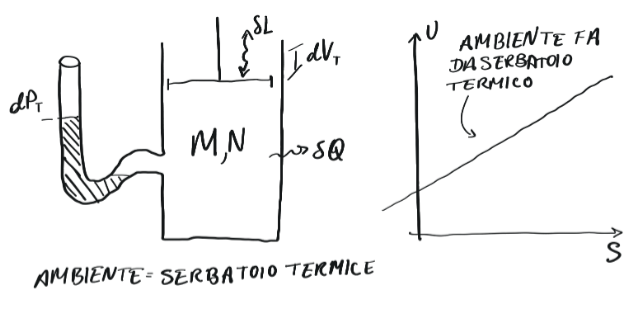 δL
dV_T
dP_T
M,N
δQ
AMBIENTE = SERBATOIO TERMICE
U
AMBIENTE FA
DA SERBATOIO
TERMICO
S